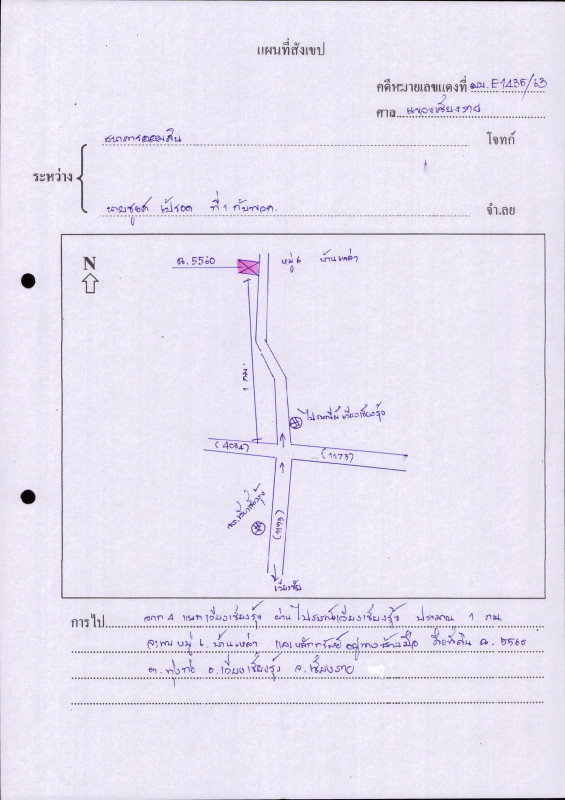 แผนที่สังเขป
คดีหมายเลขแดงที่ ผบ.E1435/63
ศาล แขวงเชียงราย
ธนาคารออมสิน โจทก์
ระหว่าง
ที่ 1 กับพวก จำเลย
N
ฉ.5560
หมู่ 6 บ้านเหล่า
1 กม.
ไปรษณีย์เวียงเชียงรุ้ง
(1173)
เวียงเชียงรุ้ง
(1173)
เวียงชัย
การไป จาก 4 แยกเวียงเชียงรุ้ง ผ่านไปรษณีย์เวียงเชียงรุ้ง ประมาณ 1 กม.
จะพบ หมู่ 6 บ้านเหล่า และหลักทรัพย์อยู่ทางซ้ายมือ คือที่ดิน ฉ. 5560
ต.ทุ่งก่อ อ.เวียงเชียงรุ้ง จ.เชียงราย